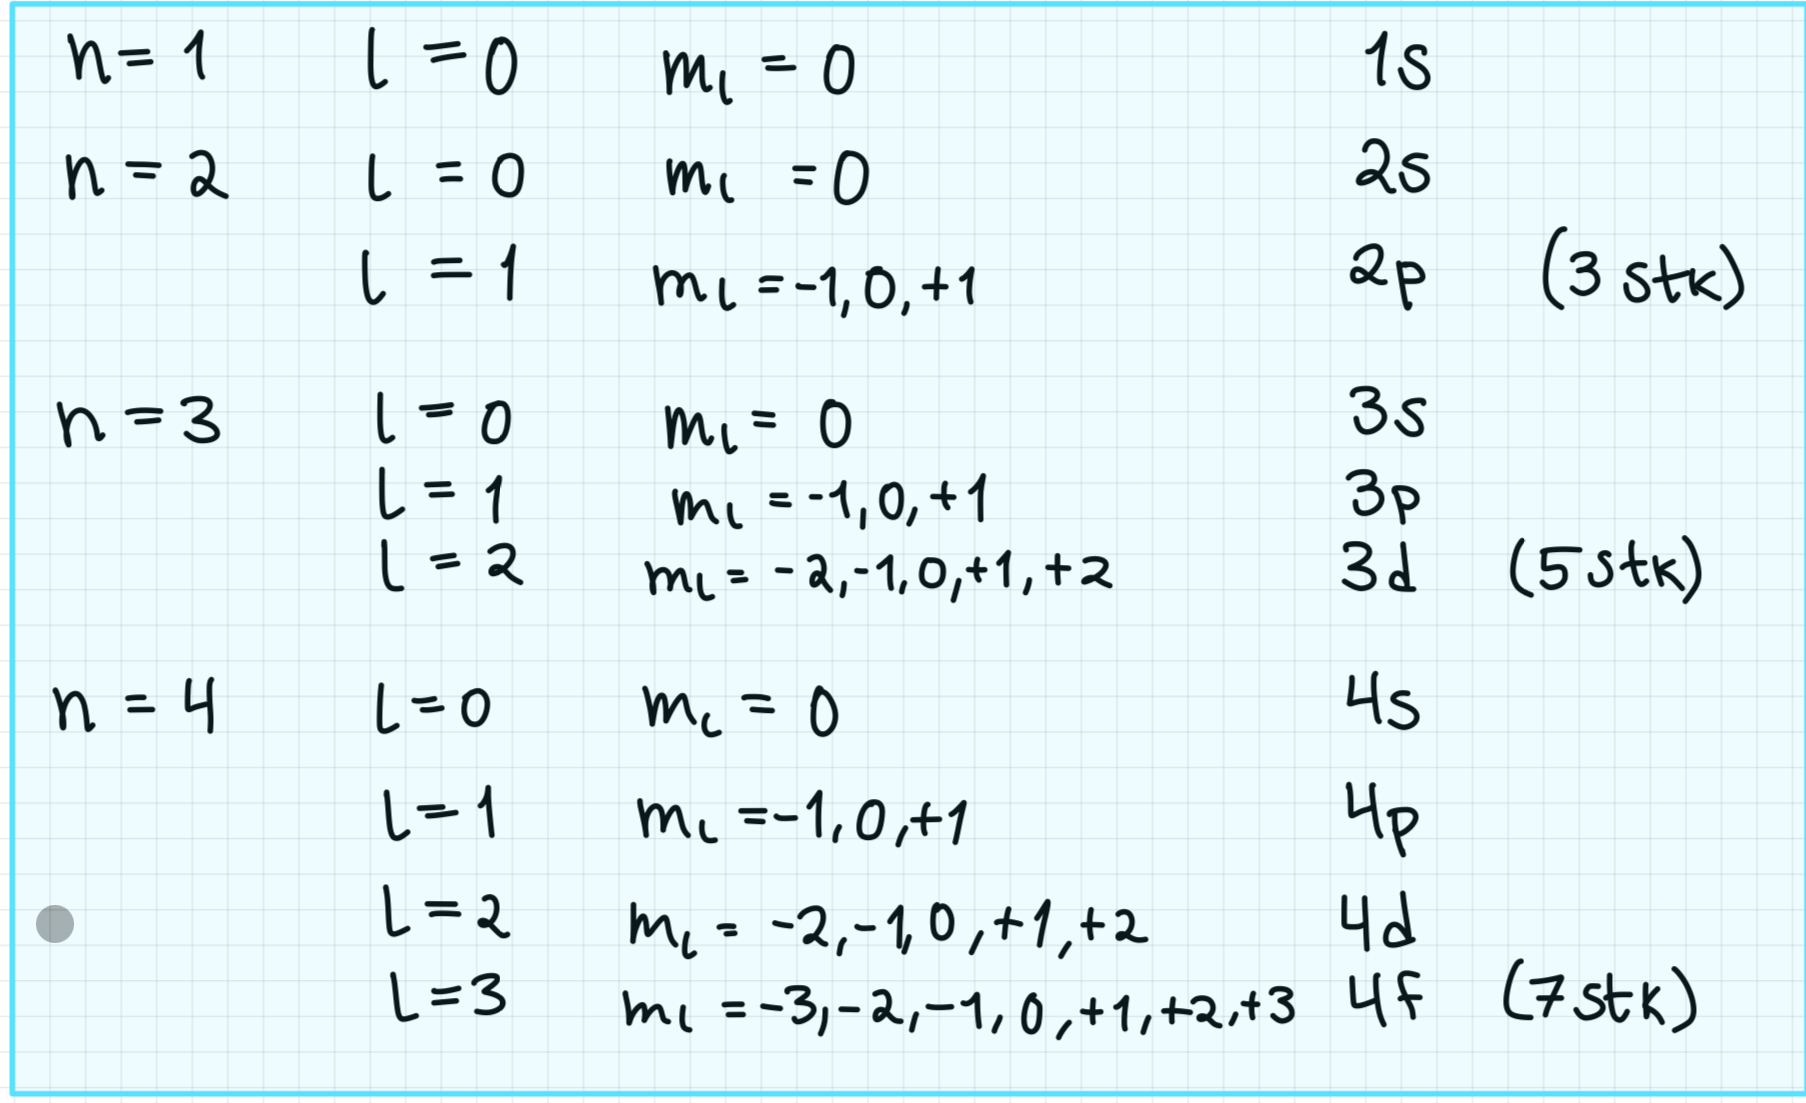 n = 1 l = 0 ml = 0 1s
n = 2 l = 0 ml = 0 2s
l = 1 ml = -1, 0, +1 2p (3 stk)
n = 3 l = 0 ml = 0 3s
l = 1 ml = -1, 0, +1 3p
l = 2 ml = -2, -1, 0, +1, +2 3d (5 stk)
n = 4 l = 0 ml = 0 4s
l = 1 ml = -1, 0, +1 4p
l = 2 ml = -2, -1, 0, +1, +2 4d
l = 3 ml = -3, -2, -1, 0, +1, +2, +3 4f (7 stk)